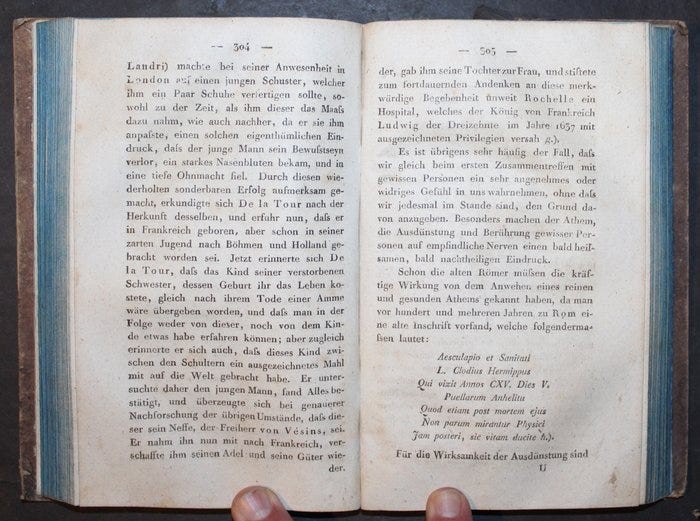 — 304 —
Landri) machte bei seiner Anwesenheit in
London auf einen jungen Schuster, welcher
ihm ein Paar Schuhe verfertigen sollte, so-
wohl zu der Zeit, als ihm dieser das Maaſs
dazu nahm, wie auch nachher, da er sie ihm
anpaſste, einen solchen eigenthümlichen Ein-
druck, daſs der junge Mann sein Bewuſstseyn
verlor, ein starkes Nasenbluten bekam, und in
eine tiefe Ohnmacht fiel. Durch diesen wie-
derholten sonderbaren Erfolg aufmerksam ge-
macht, erkundigte sich De la Tour nach der
Herkunft desselben, und erfuhr nun, daſs er
in Frankreich geboren, aber schon in seiner
zarten Jugend nach Böhmen und Holland ge-
bracht worden sei. Jetzt erinnerte sich De
la Tour, daſs das Kind seiner verstorbenen
Schwester, dessen Geburt ihr das Leben ko-
stete, gleich nach ihrem Tode einer Amme
wäre übergeben worden, und daſs man in der
Folge weder von dieser, noch von dem Kin-
de etwas habe erfahren können; aber zugleich
erinnerte er sich auch, daſs dieses Kind zwi-
schen den Schultern ein ausgezeichnetes Mahl
mit auf die Welt gebracht habe. Er unter-
suchte daher den jungen Mann, fand Alles be-
stätigt, und überzeugte sich bei genauerer
Nachforschung der übrigen Umstände, daſs die-
ser sein Neffe, der Freiherr von Vésins, sei.
Er nahm ihn nun mit nach Frankreich, ver-
schaffte ihm seinen Adel und seine Güter wie-
der.
— 305 —
der, gab ihm seine Tochter zur Frau, und stiftete
zum fortdauernden Andenken an diese merk-
würdige Begebenheit unweit Rochelle ein
Hospital, welches der König von Frankreich
Ludwig der Dreizehnte im Jahre 1637 mit
ausgezeichneten Privilegien versah g.).
Es ist übrigens sehr häufig der Fall, daſs
wir gleich beim ersten Zusammentreffen mit
gewissen Personen ein sehr angenehmes oder
widriges Gefühl in uns wahrnehmen, ohne daſs
wir jedesmal im Stande sind, den Grund da-
von anzugeben. Besonders machen der Athem,
die Ausdünstung und Berührung gewisser Per-
sonen auf empfindliche Nerven einen bald heil-
samen, bald nachtheiligen Eindruck.
Schon die alten Römer müſsen die kräf-
tige Wirkung von dem Anwehen eines reinen
und gesunden Athems gekannt haben, da man
vor hundert und mehreren Jahren zu Rom ei-
ne alte Inschrift vorfand, welche folgenderma-
ſsen lautet:
Aesculapio et Sanitati
L. Clodius Hermippus
Qui vixit Annos CXV. Dies V.
Puellarum Anhelitu
Quod etiam post mortem ejus
Non parum mirantur Physici
Jam posteri, sic vitam ducite h.).
Für die Wirksamkeit der Ausdünstung sind
U